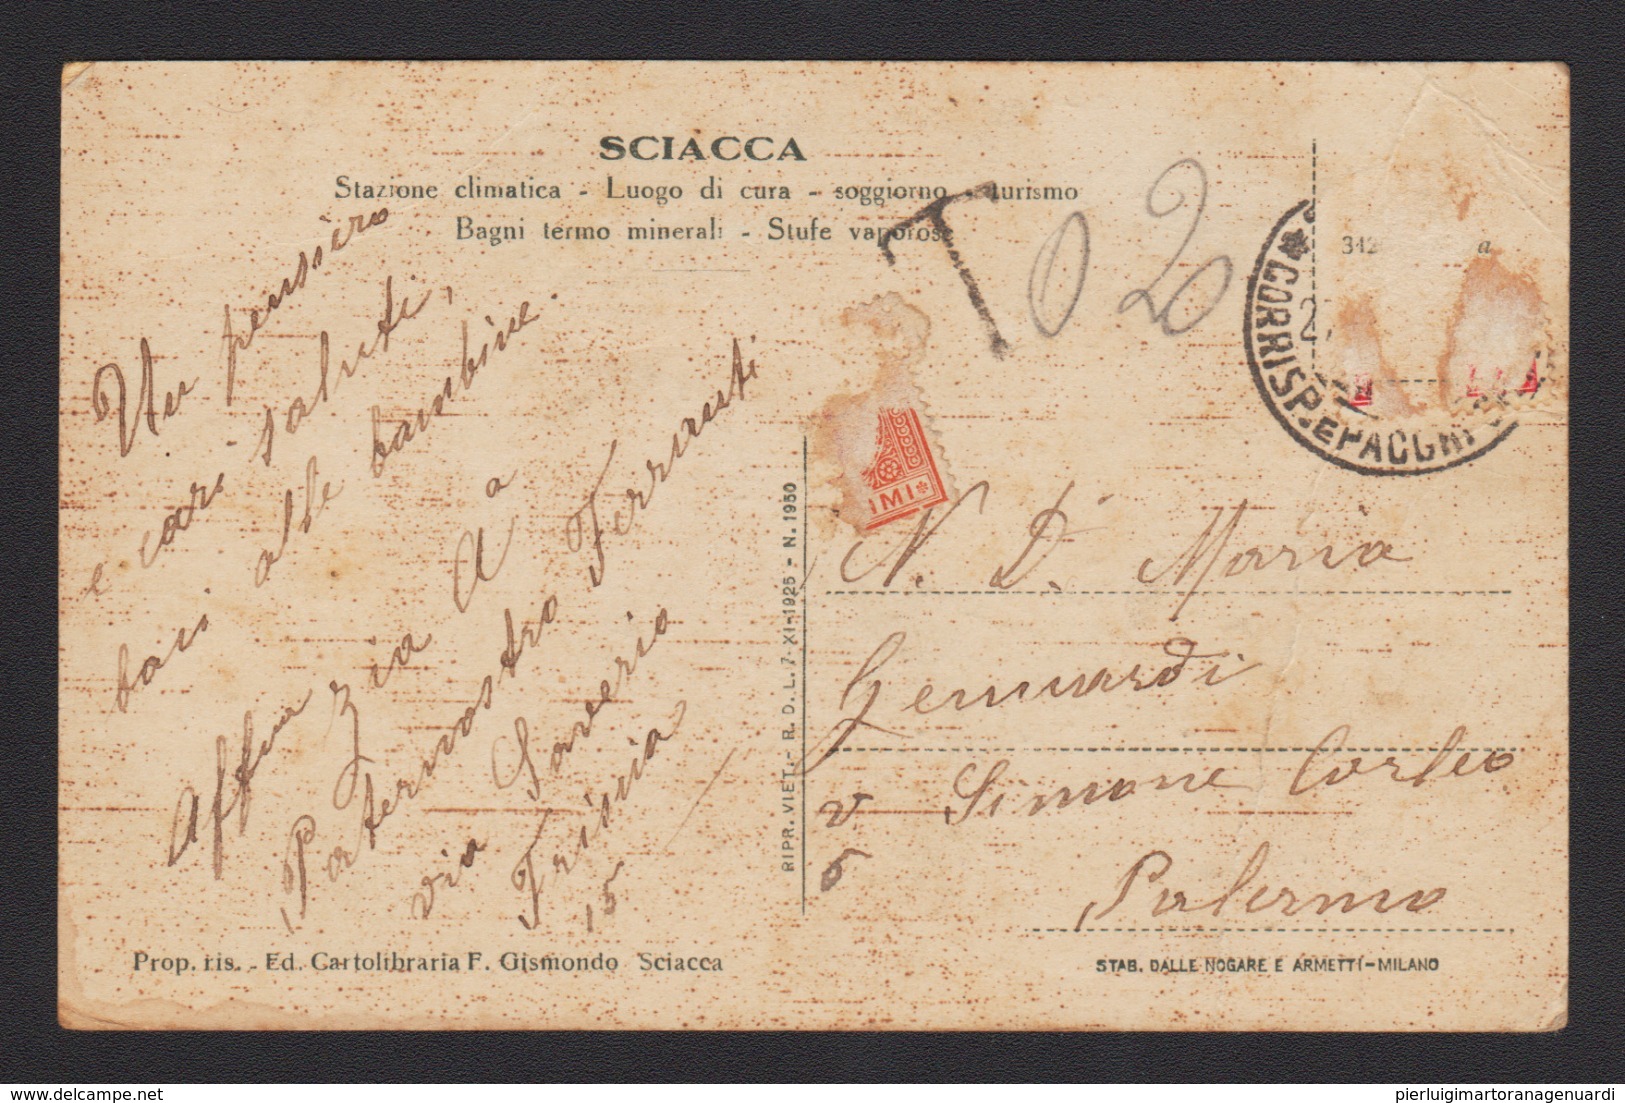 SCIACCA
Stazione climatica - Luogo di cura - soggiorno - turismo
Bagni termo minerali - Stufe vaporose
T 0 20
312 a
2
CORRISP. E PACCHI
IMI*
Un pensiero
e cari saluti,
baci alle bambine.
Affma Zia
Paternostro Ferrauti
via Saverio
Friscia
15
RIPR. VIET. - R. D. L. 7-XI-1925 - N. 1950
N. D. Maria
Gennuardi
v Simone Corleo
6
Palermo
Prop. ris. - Ed. Cartolibraria F. Gismondo Sciacca
STAB. DALLE NOGARE E ARMETTI-MILANO
delcampe.net
pierluigimartoranagenuardi